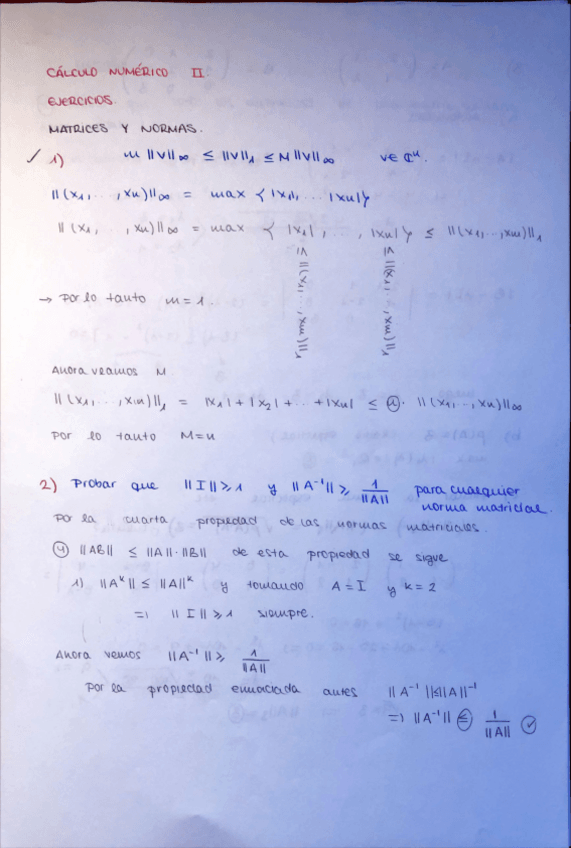 CÁLCULO NUMÉRICO II
EJERCICIOS.
MATRICES Y NORMAS.
✓ 1) m ||V||∞ ≤ ||V||₁ ≤ M ||V||∞ V∈ ℂⁿ.
||(x₁, ..., xn)||∞ = max { |x₁|, ... |xn| }
||(x₁, ..., xn)||∞ = max { |x₁|, ..., |xn| } ≤ ||(x₁,...,xn)||₁
≤ ||(x₁,...,xn)||₁ ≤ ||(x₁,...,xn)||₁
→ Por lo tanto m = 1.
Ahora veamos M
||(x₁, ..., xn)||₁ = |x₁| + |x₂| + ... + |xn| ≤ n · ||(x₁,...,xn)||∞
Por lo tanto M=n
2) Probar que ||I|| ≥ 1 y ||A⁻¹|| ≥ 1/||A|| para cualquier
norma matricial.
Por la cuarta propiedad de las normas matriciales.
④ ||AB|| ≤ ||A||·||B|| de esta propiedad se sigue
1) ||Aᵏ|| ≤ ||A||ᵏ y tomando A = I y k = 2
=> || I || ≥ 1 siempre.
Ahora vemos ||A⁻¹|| ≥ 1/||A||
Por la propiedad enunciada antes ||A⁻¹|| ≤ ||A||⁻¹
=> ||A⁻¹|| ≤ 1/||A|| ✓